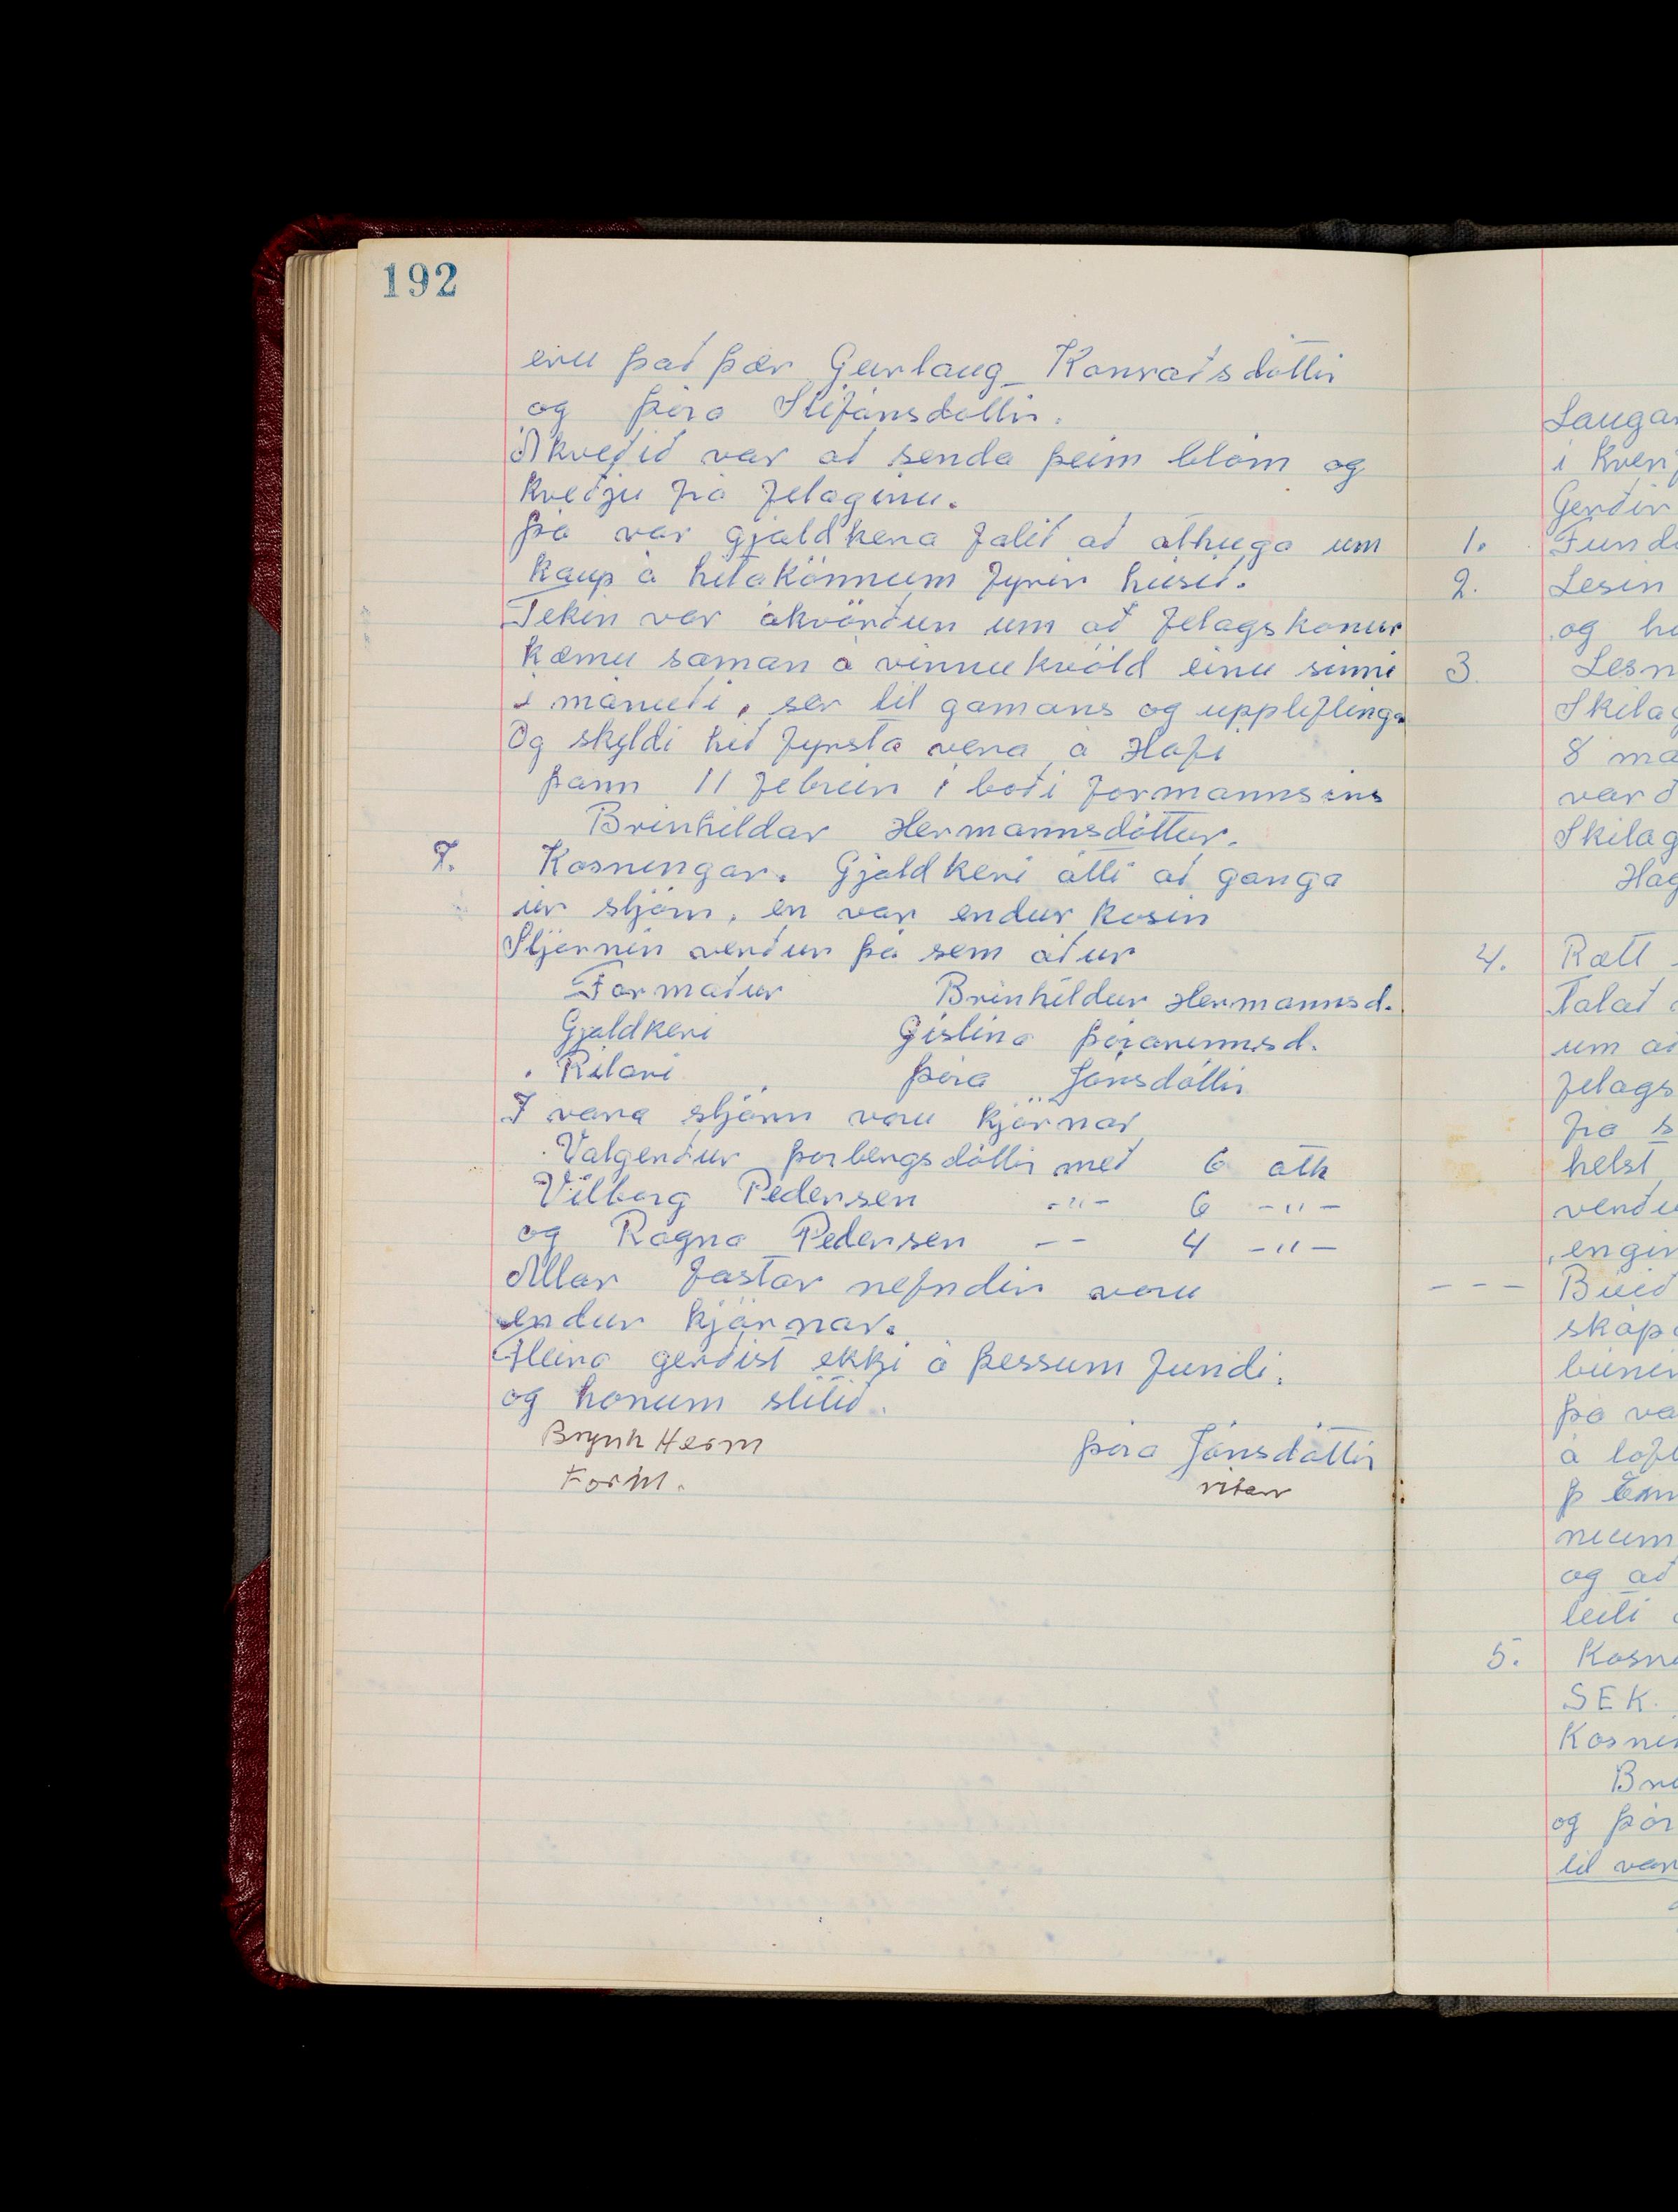 192
eru það þær Geirlaug Konraðsdóttir
og Þóra Stefánsdóttir.
Akveðið var að senda þeim blóm og
kveðju frá felaginu.
Þá var gjaldkera falið að athuga um
kaup á hitakönnum fyrir húsið.
Tekin var ákvörðun um að felagskonur
kæmu saman á vinnukvöld einu sinni
í mánuði, ser til gamans og upplifting
Og skyldi hið fyrsta vera á Hofi
þann 11 febrúir í boði formannsins
Brinhildar Hermannsdóttur.
7. Kosningar. Gjaldkeri átti að ganga
úr stjórn, en var endur kosin
Stjórnin verður þá sem áður
Formaður Brinhildur Hermannsd.
Gjaldkeri Gislína Þórarinnsd.
Ritari Þóra Jónsdóttir
I vara stjórn voru kjörnar
Valgerður Þorbergsdóttir með 6 atk
Vilborg Pedersen -"- 6 -"-
og Ragna Pedersen -- 4 -"-
Allar fastar nefndir voru
endur kjörnar.
Fleira gerðist ekki á þessum fundi.
og honum slitið.
Brynh Herm Þóra Jónsdóttir
Form. ritari
Laugar
í Kven
Gerðir
1. Fund
2. Lesin
og h
3 Lesn
Skilag
8 ma
varð
Skilag
Hag
4. Rætt
Talað
um að
felags
frá s
helst
verðu
engin
--- Búið
skáp
búnin
þá va
á loft
Þ Ein
num
og að
leiti
5. Kosni
SEK.
Kosnin
Bri
og Þór
til var